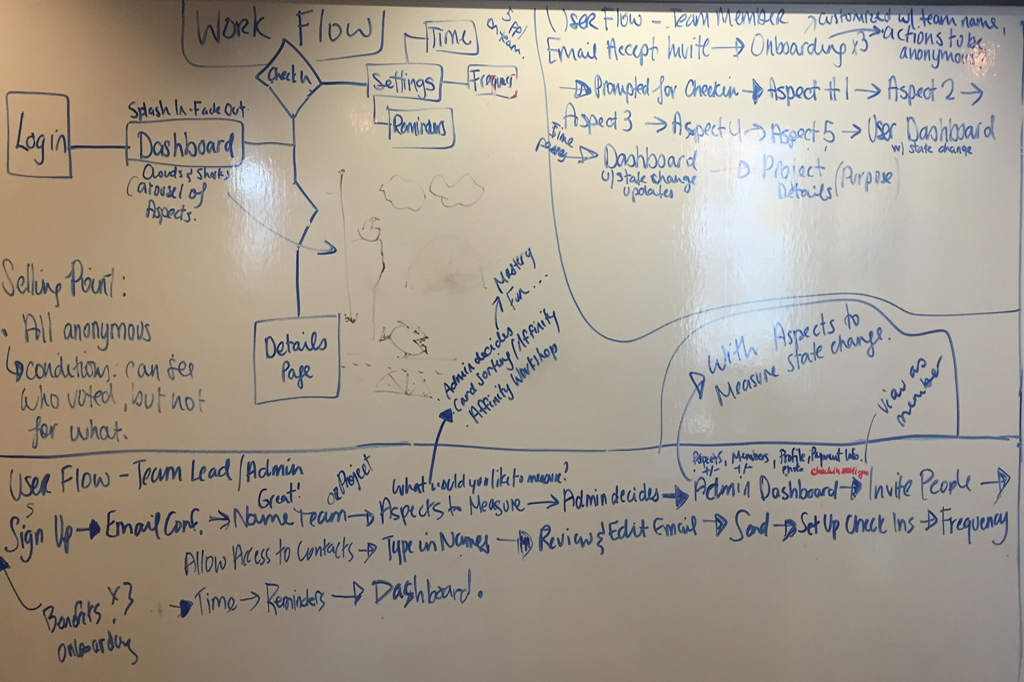 WORK FLOW
Check In
Time
5 ppl
on team.
Settings
Reminders
Login
Splash In-Fade Out
Dashboard
Clouds & Sharks
Carousel of
Aspects.
Details
Page
Selling Point:
• All anonymous
conditions: can see
who voted, but not
for what.
User Flow - Team Member
customized w/ team name,
actions to be
anonymous
Email Accept Invite → Onboarding x3
→ Prompted for Checkin → Aspect #1 → Aspect 2 →
Aspect 3 → Aspect 4 → Aspect 5 → User Dashboard
w/ state change
Time
passes
→ Dashboard
w/ state change
updates
→ Project
Details
(Purpose)
Mastery
Fun...
Admin decides
Card Sorting/Affinity
. Affinity Workshop
With Aspects to
Measure state change.
View as
member
User Flow - Team Lead/Admin
Great!
or Project
What would you like to measure?
Aspects, Members, Profile, Payment Info.
+/- +/-
Sign Up → Email Conf. → Name Team → Aspects to Measure → Admin decides → Admin Dashboard → Invite People →
Allow Access to Contacts → Type in Names → Review & Edit Email → Send → Set Up Check Ins → Frequency
→ Time → Reminders → Dashboard.
Benefits x3
onboarding